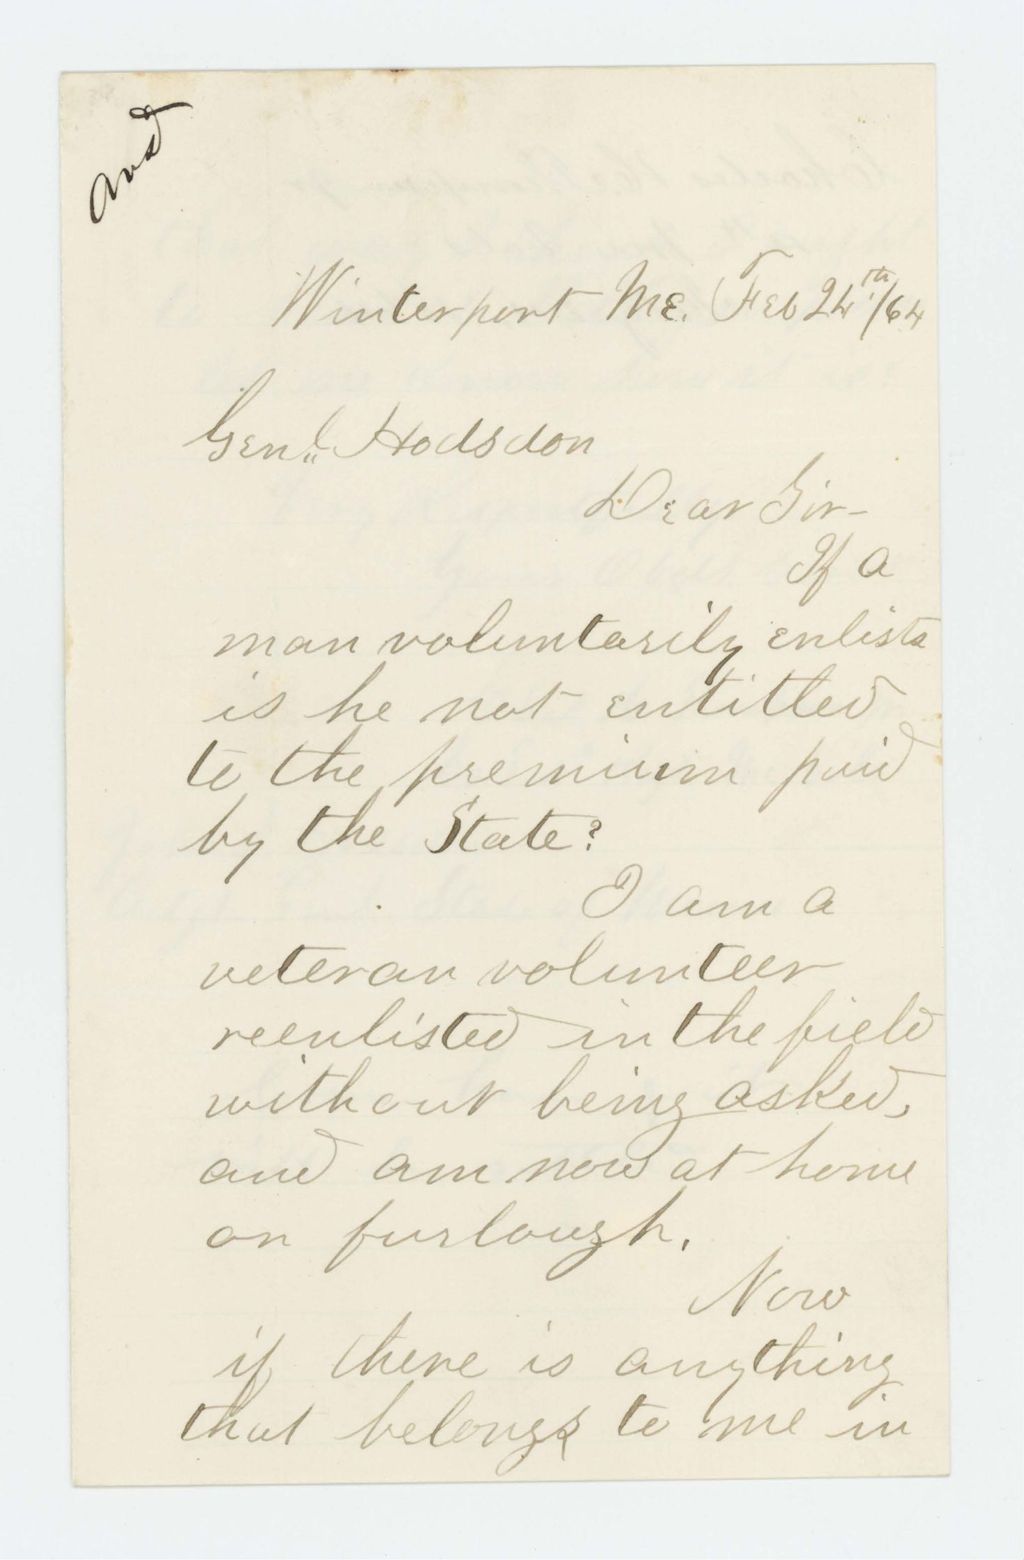 and
Winterport Me. Feb 24th/64
Genl. Hodsdon
Dear Sir-
If a
man voluntarily enlists
is he not entitled
to the premium paid
by the State?
I am a
veteran volunteer
reenlisted in the field
without being asked,
and am now at home
on furlough.
Now
if there is anything
that belongs to me in